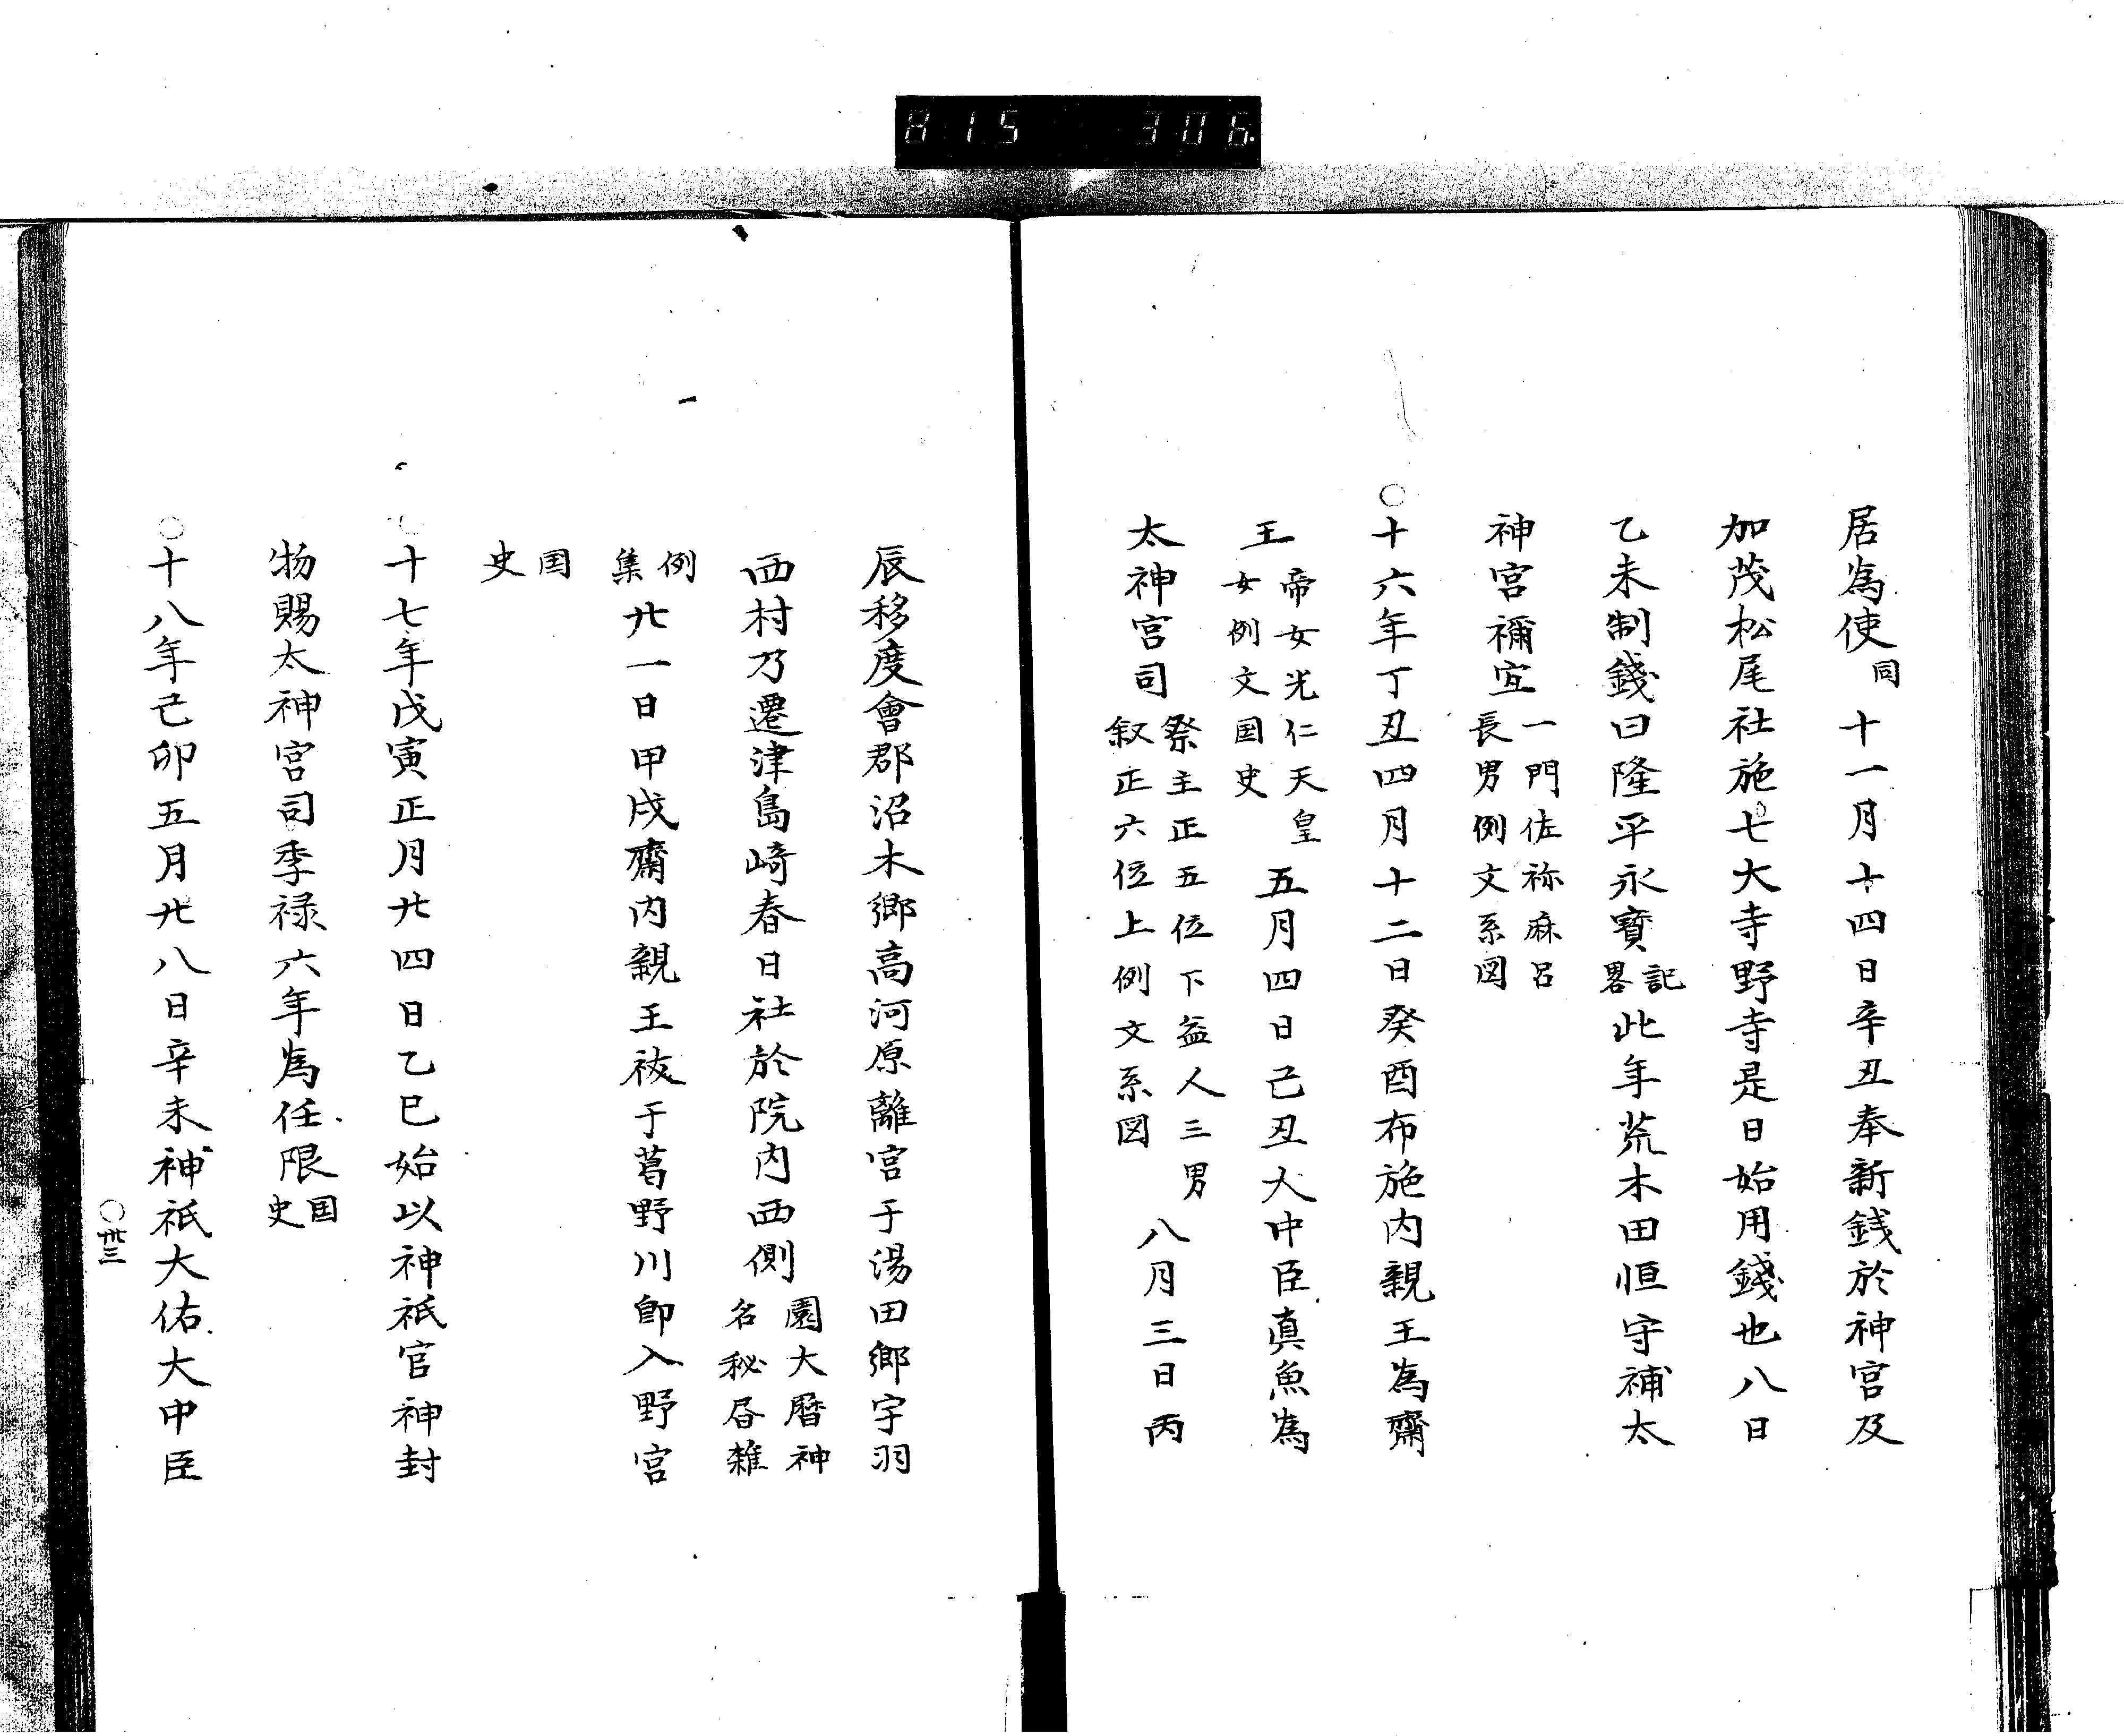 815 306
居為使同十一月十四日辛丑奉新銭於神宮及
加茂松尾社施七大寺野寺是日始用錢也八日
乙未制錢曰隆平永寶記畧此年荒木田恒守補太
神宮禰宜一門佐祢麻呂長男例文系図
○十六年丁丑四月十二日癸酉布施内親王為齋
王帝女光仁天皇女例文国史五月四日己丑大中臣真魚為
太神宮司祭主正五位下益人三男叙正六位上例文系図八月三日丙
辰移度會郡沼木郷高河原離宮于湯田郷宇羽
西村乃遷津島崎春日社於院内西側園大暦神名秘㫪雑
例集廿一日甲戌齋内親王祓于葛野川卽入野宮
国史
○十七年戊寅正月廿四日乙巳始以神祇官神封
物賜太神宮司季禄六年為任限国史
○十八年己卯五月廿八日辛未神祇大佑大中臣
○卅三